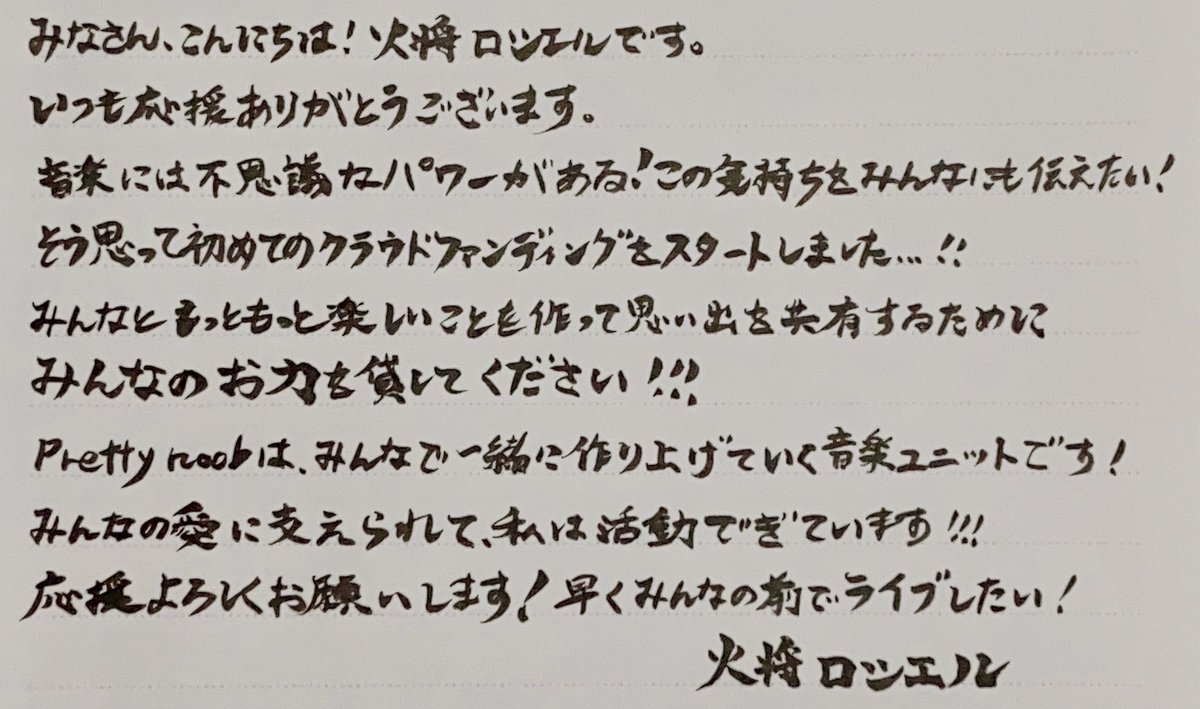 みなさん、こんにちは！火将ロシエルです。
いつも応援ありがとうございます。
音楽には不思議なパワーがある！この気持ちをみんなにも伝えたい！
そう思って初めてのクラウドファンディングをスタートしました…!!
みんなともっともっと楽しいことを作って思い出を共有するために
みんなのお力を貸してください!!!
Pretty noobは、みんなで一緒に作り上げていく音楽ユニットです！
みんなの愛に支えられて、私は活動できています!!!
応援よろしくお願いします！早くみんなの前でライブしたい！
火将ロシエル